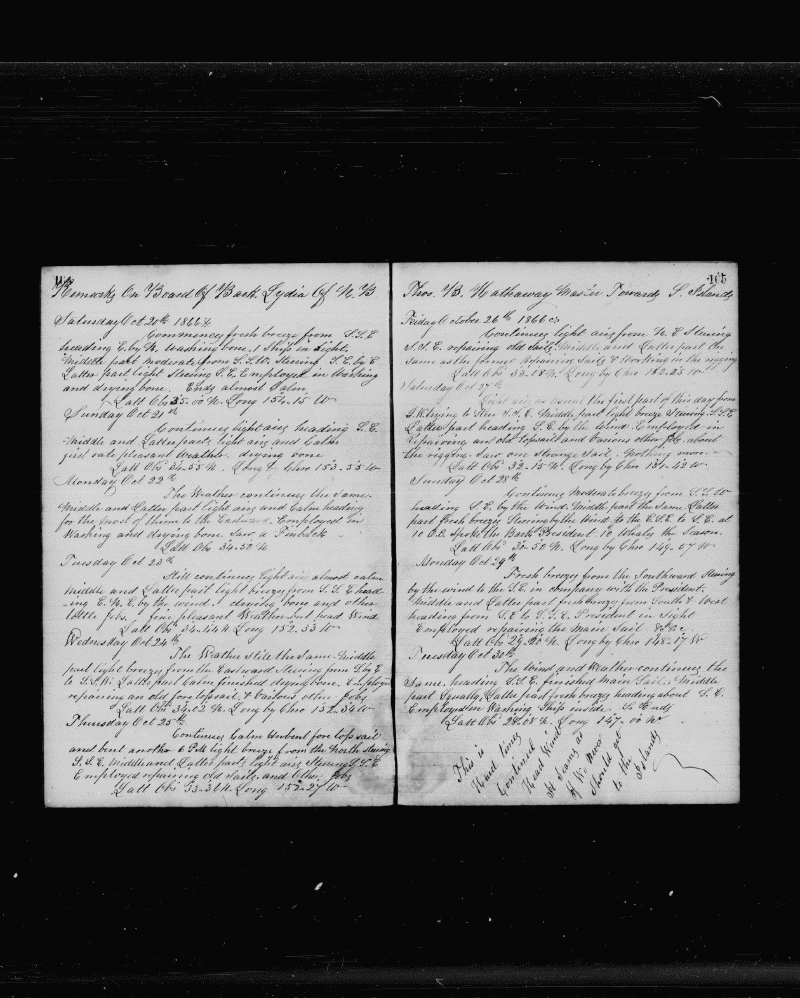 Remarks On Board Of Bark Lydia Of N. B
Saturday Oct 20th 1866
Commences fresh breeze from S.S.E
heading E. by N. Washing bone. 1 Ship in Sight,
Middle part moderate, from S.S.W. Steering S.E. by E
Latter part light Steering S.E. Employed in Washing
and drying bone. Ends almost Calm
Latt Obs 35-00 N. Long 154-15 W
Sunday Oct 21st
Continues light airs heading S. E.
Middle and Latter part, light airs and Calm
first rate pleasant Weather. drying bone
Latt Obs 34-55 N. Long by Chro 153-53 W
Monday Oct 22nd
The Weather continues the Same.
Middle and Latter part light airs and Calm heading
for the most of them to the Eastward. Employed in
Washing and drying bone Saw a Finback
Latt Obs 34-50 N
Tuesday Oct 23rd
Still continues light airs almost calm
Middle and Latter part light breeze from S.S.E head
-ing E.N.E. by the wind. drying bone and other
little jobs. fine pleasant Weather but head Wind
Latt Obs 34-44 N Long 152-53 W
Wednesday Oct 24th
The Weather still the Same. Middle
part light breeze from the Eastward Steering from S. by E
to S.S.W. Latter part Calm finished drying bone. Employed
repairing an old fore topsail & Various other jobs
Latt Obs 34-02 N. Long by Chro 152-34 W
Thursday Oct 25th
Continues Calm unbent fore top sail
and bent another 6 P.M light breeze from the North steering
S.S.E. Middle and Latter part, light airs Steering S.S.E
Employed repairing old Sails and Other jobs
Latt Obs 33-36 N. Long 152-27 W
105
Thos. B. Hathaway Master Towards S. Islands
Friday October 26th 1866
Continues light airs from N. E Steering
S.S.E. repairing old Sails. Middle and Latter part the
same as the former repairing Sails & Working in the rigging
Latt Obs 33-08 N. Long by Chro 152-25 W
Saturday Oct 27th
Light airs as usual the first part of this day from
S.W. trying to Steer S.S.E. Middle part light breeze Steering S.S.E
Latter part heading S.E. by the wind. Employed in
repairing an old topsail and Various other jobs about
the rigging. Saw one Strange Sail. Nothing more.
Latt Obs 32-15 N. Long by Chro 151-42 W
Sunday Oct 28th
Continues Moderate breeze from S.S.W
heading S.E. by the Wind. Middle part the Same. Latter
part fresh breeze Steering by the Wind to the E.S.E to S.E. at
10 spoke the Bark President 10 Whales the Season.
Latt Obs 30-50 N. Long by Chro 149-57 W
Monday Oct 29th
Fresh breezes from the Southward Steering
by the wind to the S.E. in company with the President.
Middle and Latter part fresh breeze from South & West
heading from S.E to S.S.E. President in Sight
Employed repairing the Main Sail &c &c
Latt Obs 29-20 N. Long by Chro 148-17 W
Tuesday Oct 30th
The Wind and Weather continues the
Same. heading S.S.E. finished Main Sail. Middle
part Squally, Latter part fresh breeze heading about S. E.
Employed in Washing Ship inside. So Ends
Latt Obs 28-08 N. Long 147-00 W
This is
Hard times
Continual
Head Wind
It Seams as
if We Never
Should get
to the
Islands